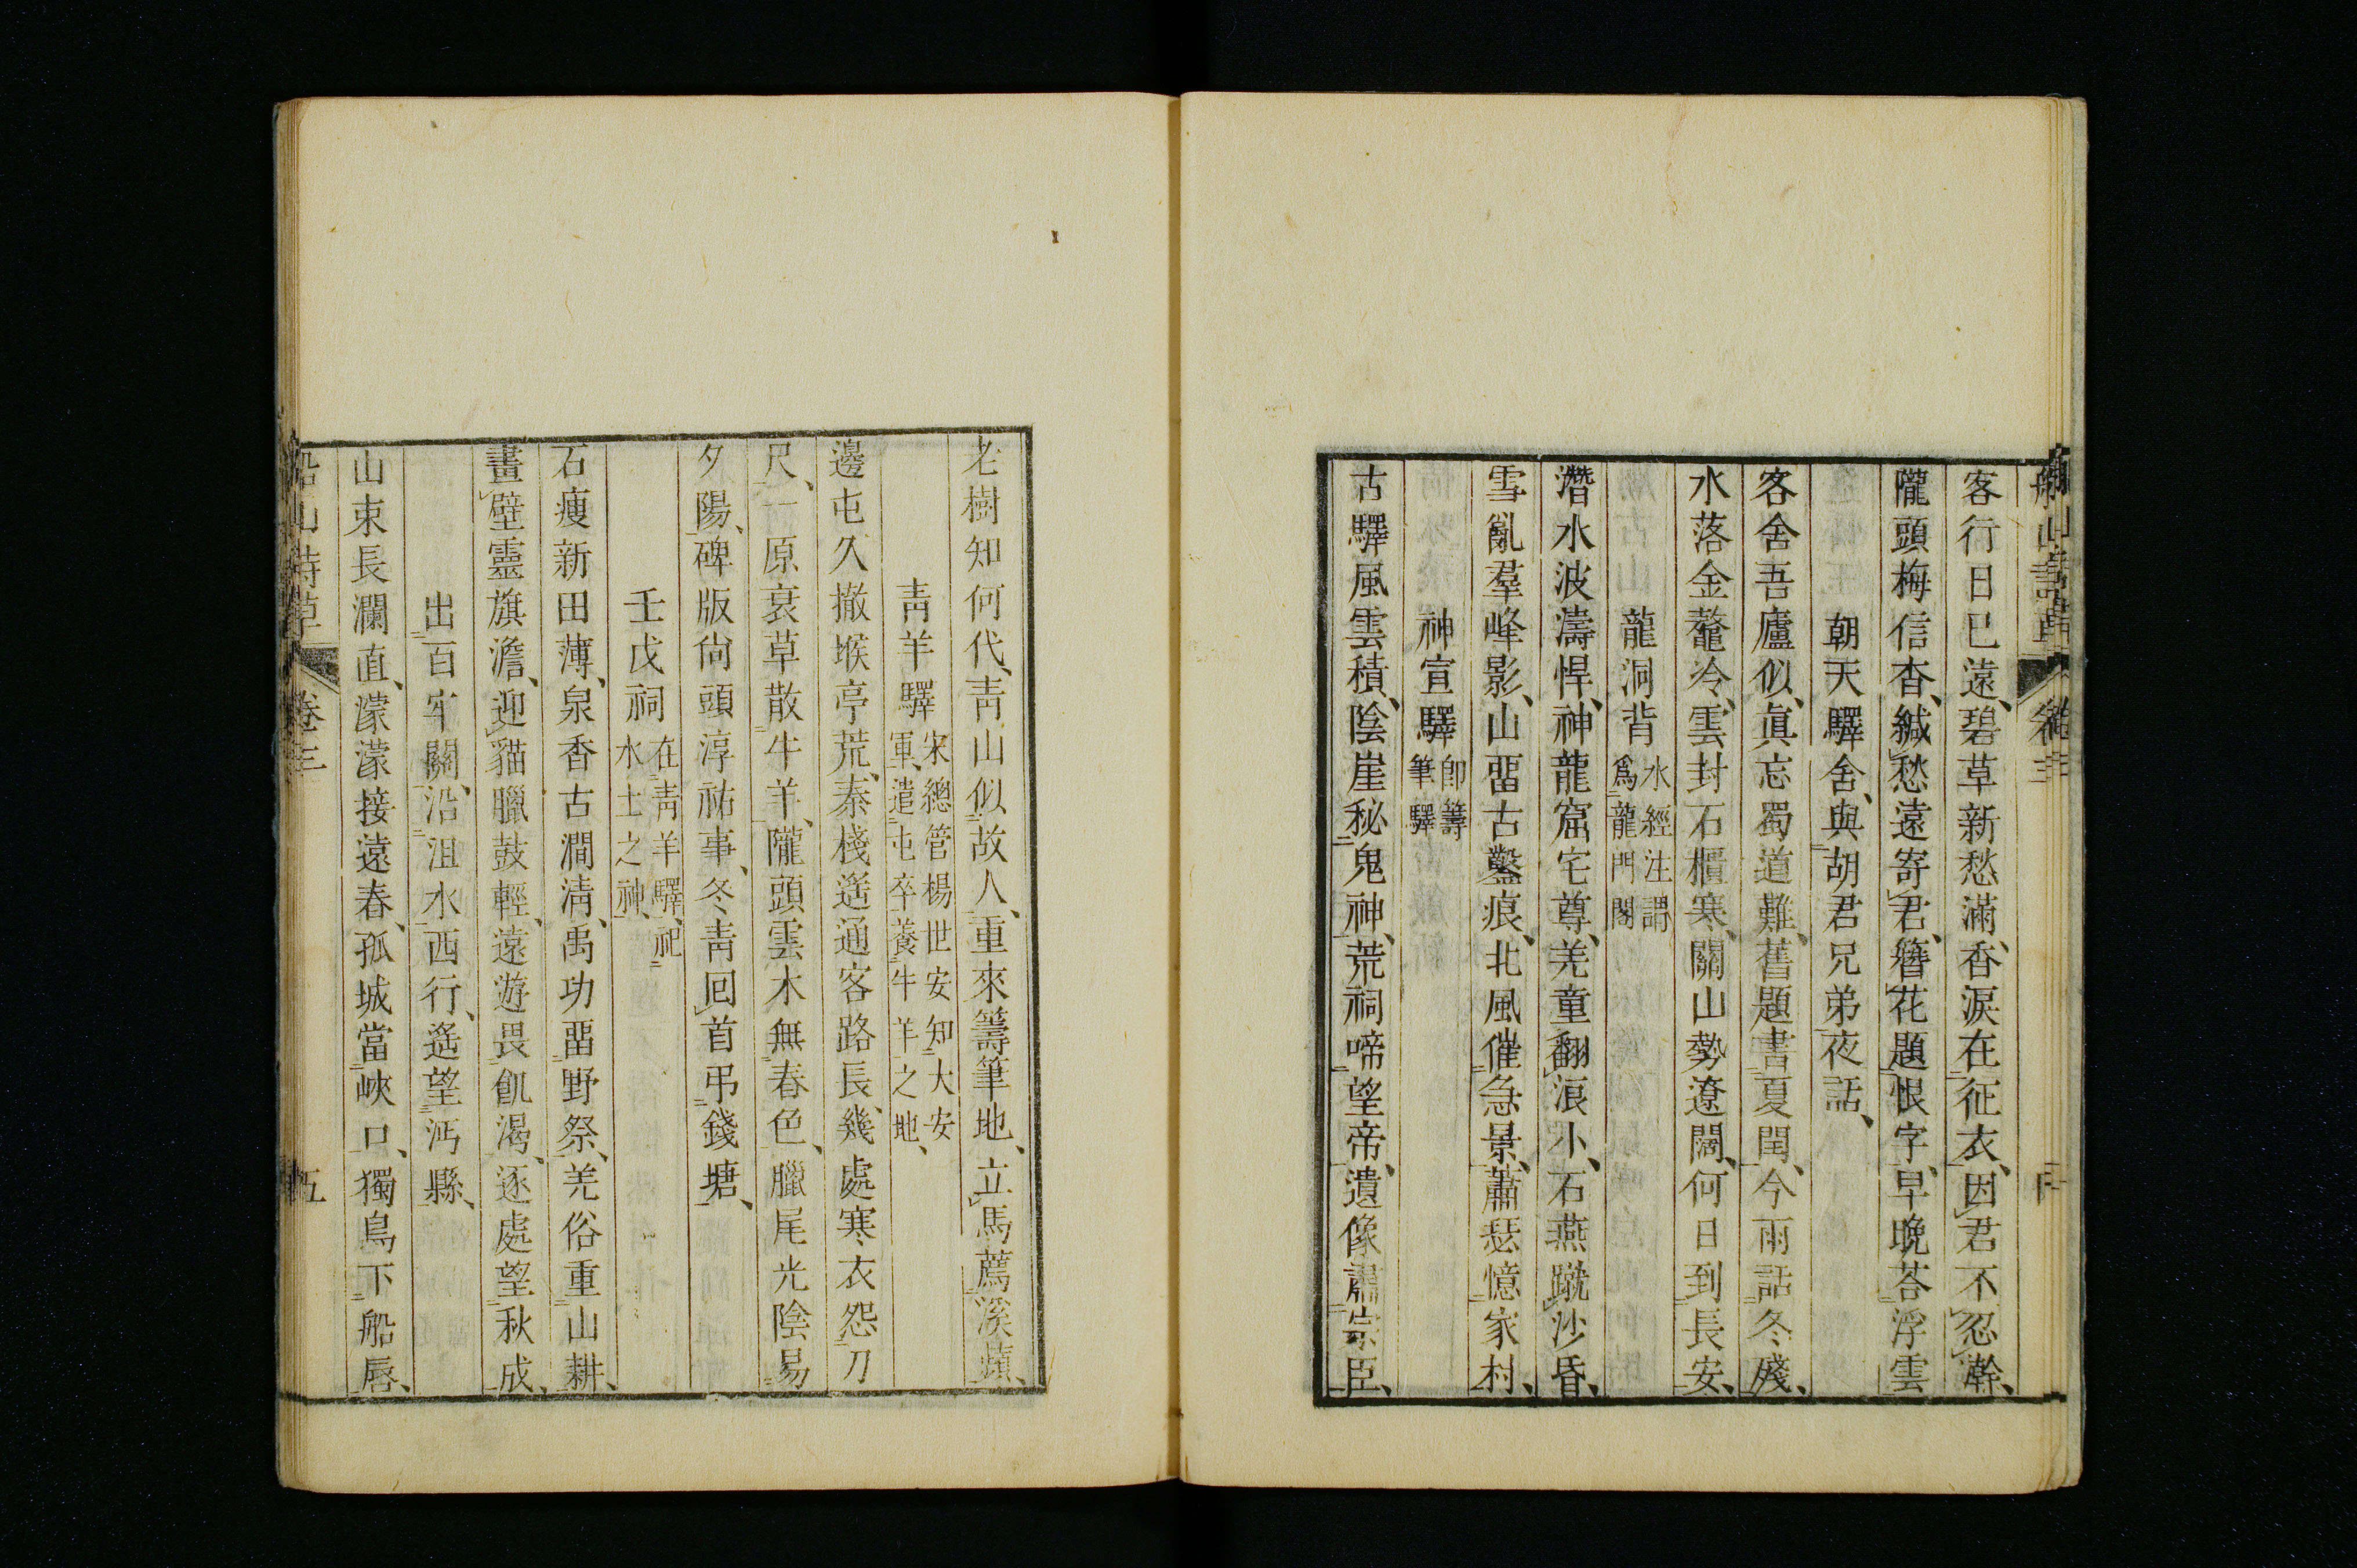 船山詩草 卷三 四
客行日已遠、碧草新愁滿、香淚在征衣、因君不忍澣、
隴頭梅信杳、緘愁遠寄君、簪花題恨字、早晚荅浮雲
朝天驛舍、與胡君兄弟夜話、
客舍吾廬似、眞忘蜀道難、舊題書夏閏、今雨話冬殘、
水落金鼇冷、雲封石櫃寒、關山勢遼闊、何日到長安、
龍洞背 水經注謂爲龍門閣
潛水波濤悍、神龍窟宅尊、羌童翻浪小、石燕蹴沙昏、
雪亂羣峰影、山畱古鑿痕、北風催急景、蕭瑟憶家村、
神宣驛 卽籌筆驛
古驛風雲積、陰崖秘鬼神、荒祠啼望帝、遺像肅宗臣、
老樹知何代、靑山似故人、重來籌筆地、立馬薦溪蘋、
靑羊驛 宋總管楊世安知大安軍、遣屯卒養牛羊之地、
邊屯久撤堠亭荒、秦棧遙通客路長、幾處寒衣怨刀
尺、一原衰草散牛羊、隴頭雲木無春色、臘尾光陰易
夕陽、碑版尙頭淳祐事、冬靑回首弔錢塘、
壬戊祠 在靑羊驛、祀水土之神、
石瘦新田薄、泉香古澗淸、禹功畱野祭、羌俗重山耕、
畫壁靈旗澹、迎貓臘鼓輕、遠遊畏飢渴、逐處望秋成、
出百牢關、沿沮水西行、遙望沔縣、
山束長瀾直、濛濛接遠春、孤城當峽口、獨鳥下船脣、
船山詩草 卷三 五